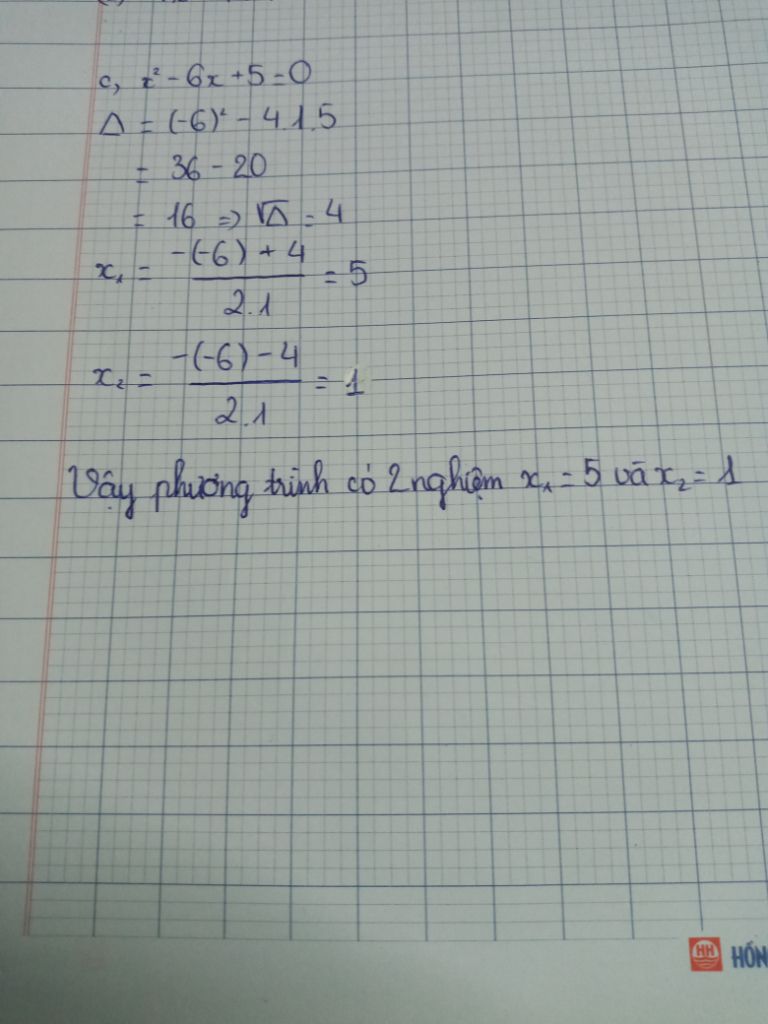 c, x² - 6x + 5 = 0
Δ = (-6)² - 4.1.5
= 36 - 20
= 16 => √Δ = 4
x₁ = -(-6) + 4 / 2.1 = 5
x₂ = -(-6) - 4 / 2.1 = 1
Vậy phương trình có 2 nghiệm x₁ = 5 và x₂ = 1
HH HỒN